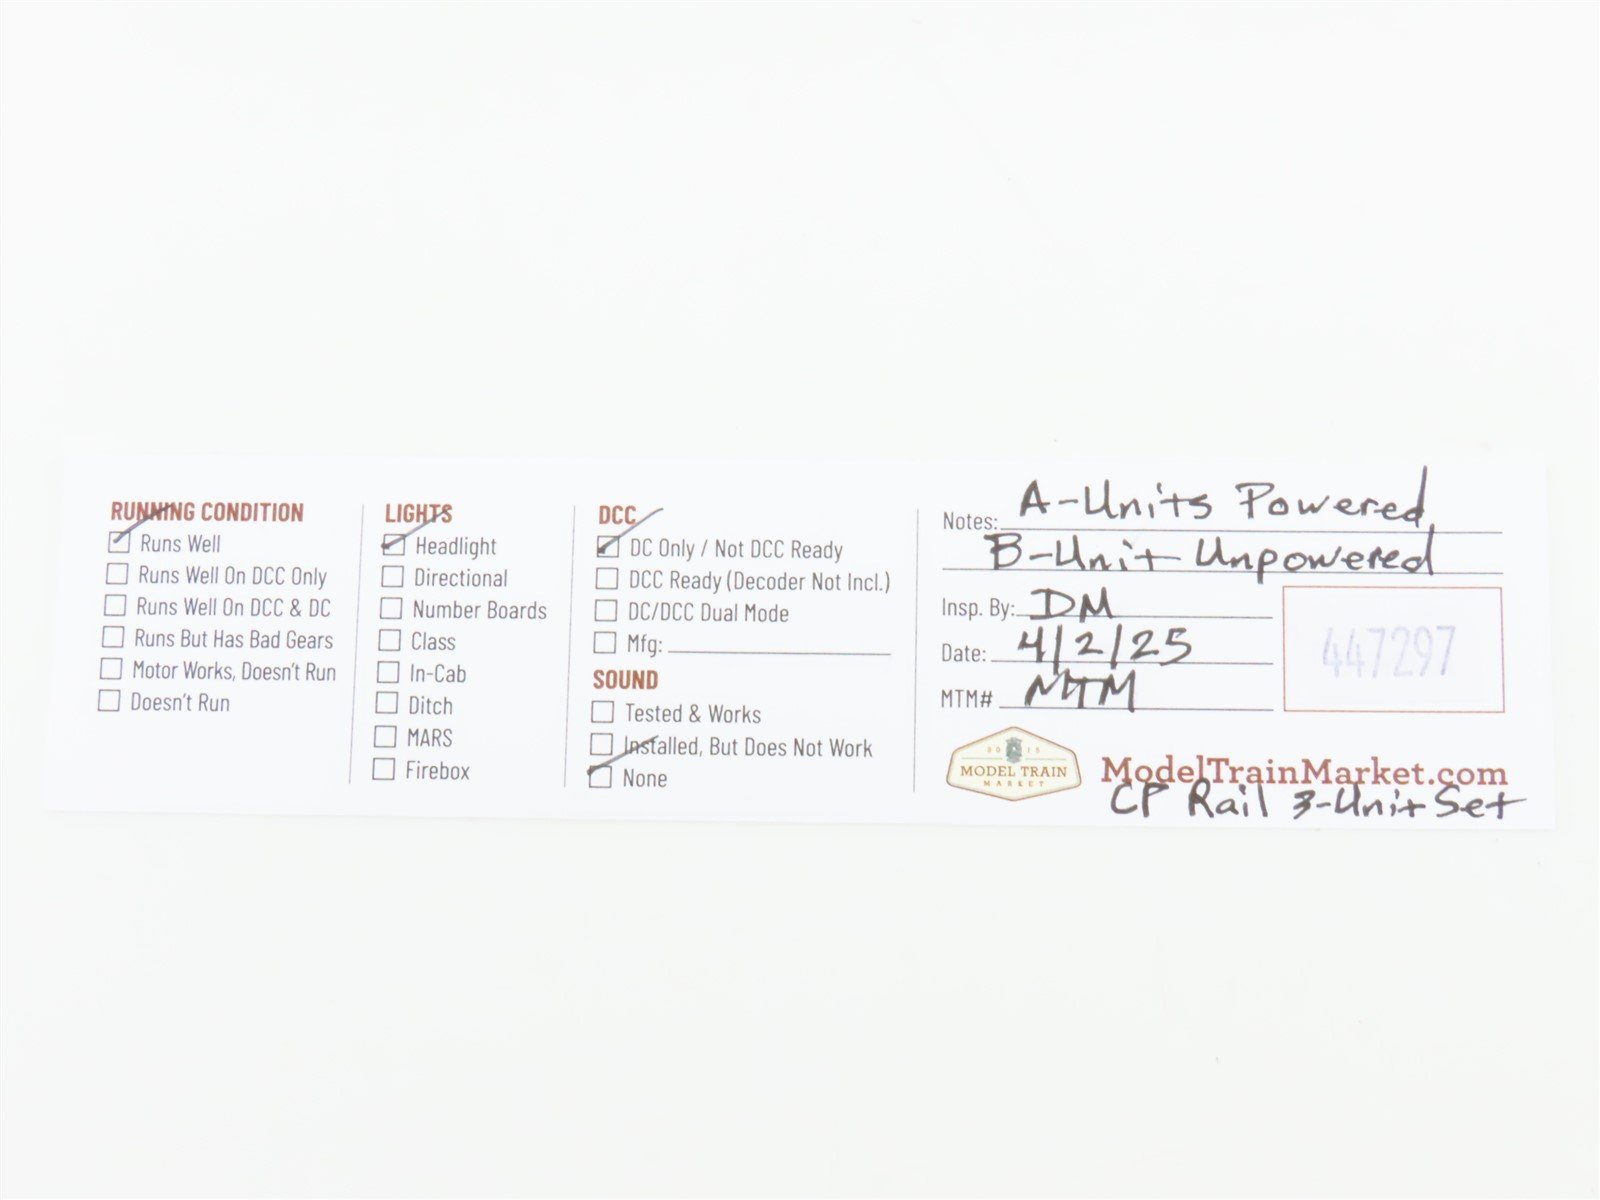 RUNNING CONDITION
Runs Well
Runs Well On DCC Only
Runs Well On DCC & DC
Runs But Has Bad Gears
Motor Works, Doesn't Run
Doesn't Run
LIGHTS
Headlight
Directional
Number Boards
Class
In-Cab
Ditch
MARS
Firebox
DCC
DC Only / Not DCC Ready
DCC Ready (Decoder Not Incl.)
DC/DCC Dual Mode
Mfg:
SOUND
Tested & Works
Installed, But Does Not Work
None
Notes: A-Units Powered
B-Unit Unpowered
Insp. By: DM
Date: 4/2/25
MTM# MTM
447297
2015
MODEL TRAIN
MARKET
ModelTrainMarket.com
CP Rail 3-Unit Set